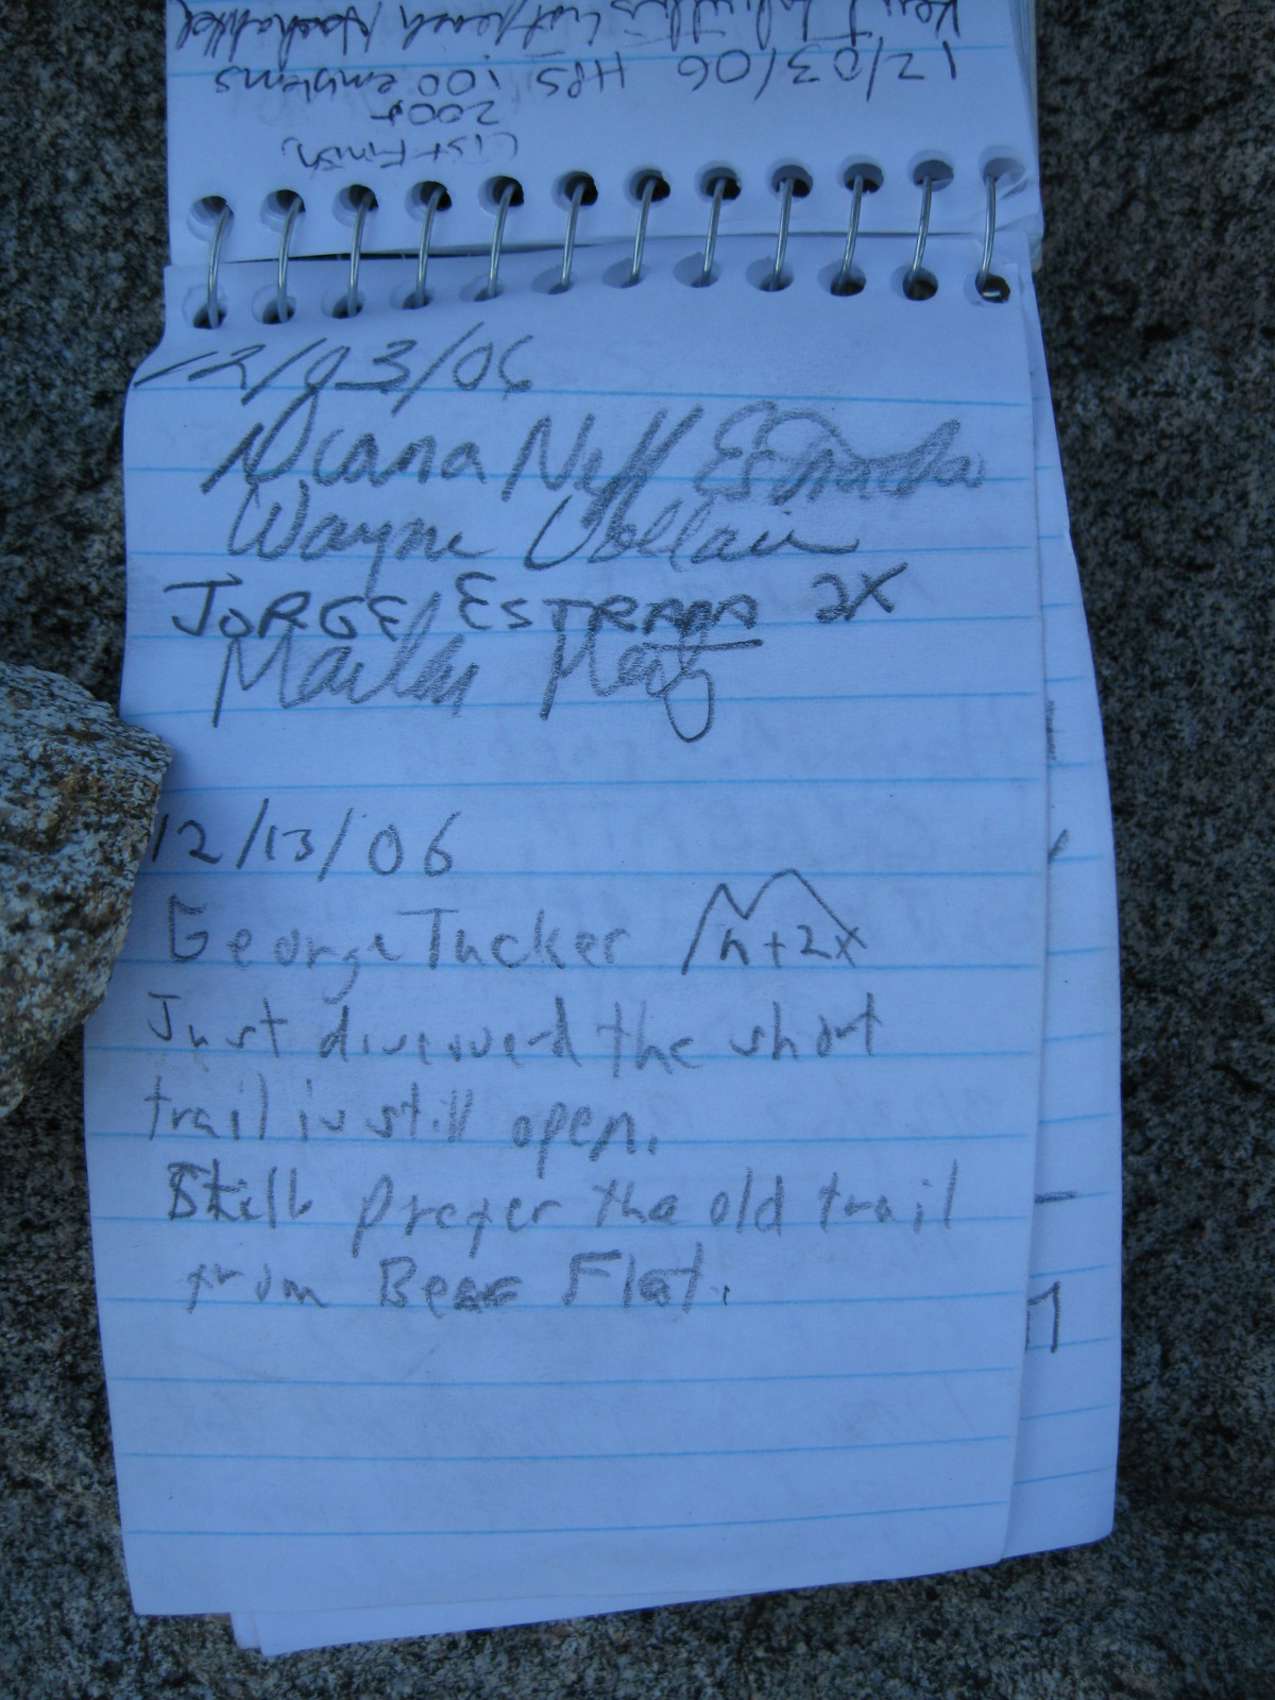 12/03/06 HPS 100 emblems
2005
List Finish
12/03/06
Diana Neff Estrada
Wayne Vollaire
JORGE ESTRADA 2X
12/13/06
George Tucker n+2x
Just discovered the short
trail is still open.
Still prefer the old trail
from Bear Flat.